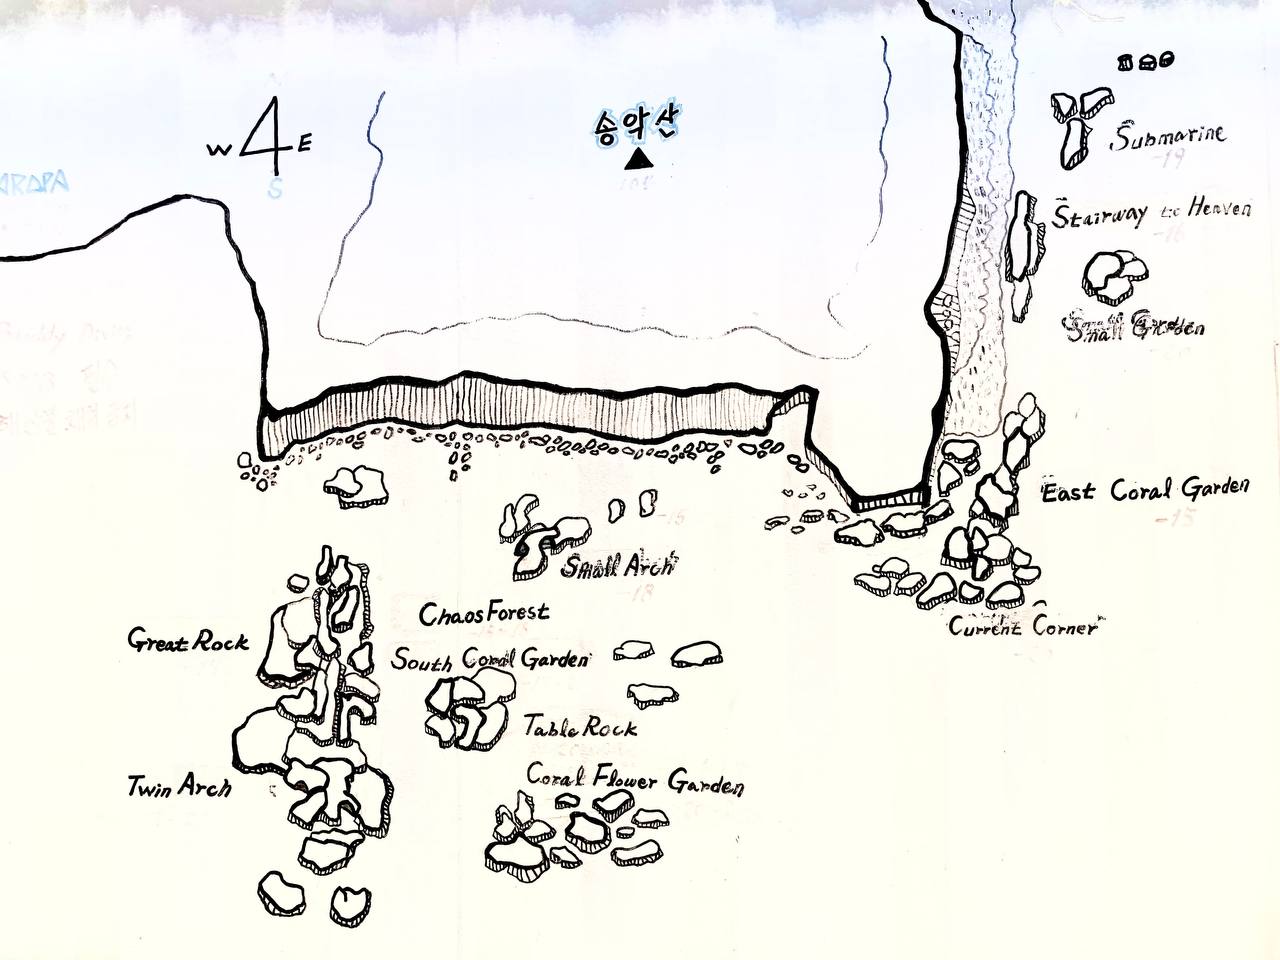 송악산
W E
S
Submarine
-19
Stairway to Heaven
-16
Small Garden
East Coral Garden
-15
-15
Small Arch
-18
Chaos Forest
Great Rock
South Coral Garden
Current Corner
Table Rock
Twin Arch
Coral Flower Garden